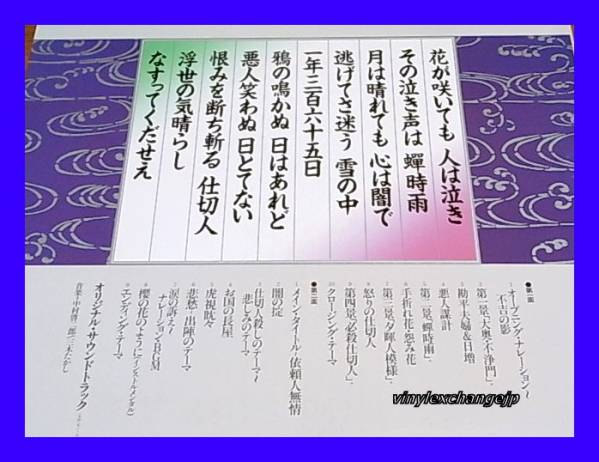 花が咲いても 人は泣き
その泣き声は 蟬時雨
月は晴れても 心は闇で
逃げてさ迷う 雪の中
一年三百六十五日
鴉の鳴かぬ 日はあれど
悪人笑わぬ 日とてない
恨みを断ち斬る 仕切人
浮世の気晴らし
なすってくだせえ
●第一面
1 オープニング・ナレーション〜
不吉の影
2 第一景、「大奥・不浄門」
3 勘平夫婦&日増
4 悪人謀計
5 第二景、「蟬時雨」
6 手折れ花・怨み花
7 第三景、「夕暉人模様」
8 怒りの仕切人
9 第四景、「必殺仕切人」
10 クロージング・テーマ
●第二面
1 メイン・タイトル/依頼人無情
2 闇の掟
3 仕切人殺しのテーマ〜
悲しみのテーマ
4 お国の長屋
5 虎視眈々
6 悲愁/出陣のテーマ
7 涙の訴え〜
ナレーションBGM
8 櫻の花のように(インストルメンタル)
9 エンディング・テーマ
オリジナル・サウンドトラック
音楽=中村啓二郎/三木たかし
vinylexchangejp